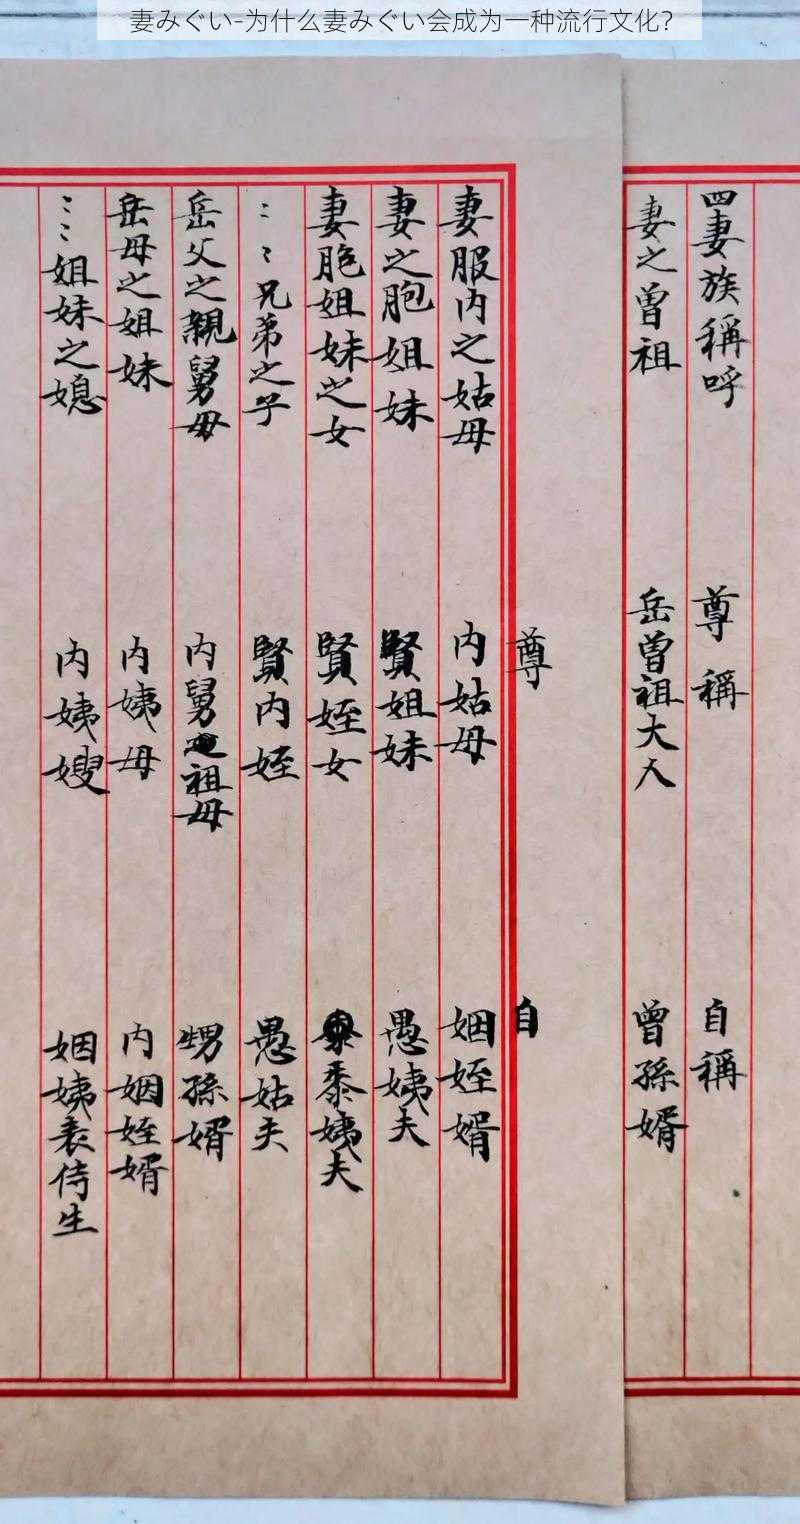 妻みぐい-为什么妻みぐい会成为一种流行文化？
四妻族稱呼 尊稱 自稱
妻之曾祖 岳曾祖大人 曾孫婿
尊 自
妻服内之姑母 内姑母 姻姪婿
妻之胞姐妹 賢姐妹 愚姨夫
妻胞姐妹之女 賢姪女 黍姨夫
〻〻兄弟之子 賢内姪 愚姑夫
岳父之親舅母 内舅祖母 甥孫婿
岳母之姐妹 内姨母 内姻姪婿
〻〻姐妹之媳 内姨嫂 姻姨表侍生